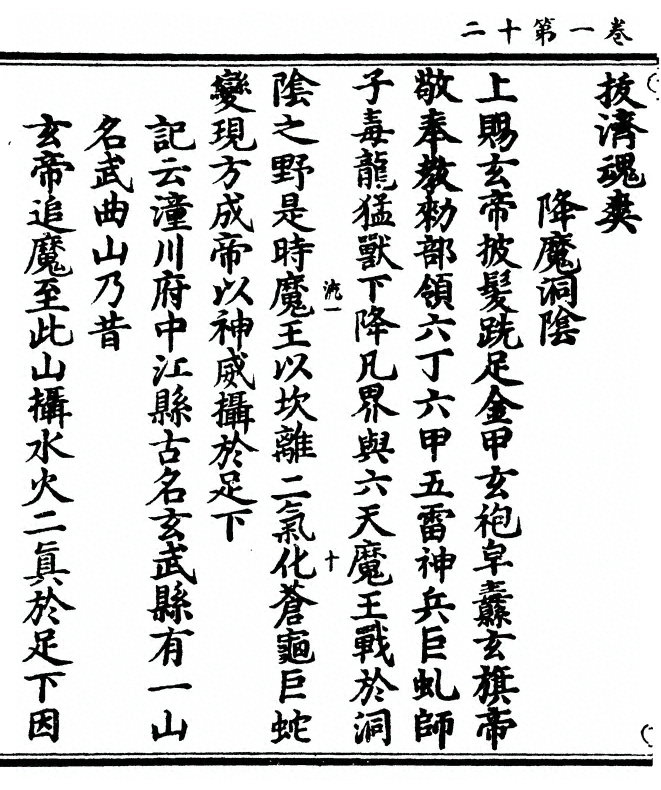 卷一第十二
拔濟魂爽
降魔洞陰
上賜玄帝披髮跣足金甲玄袍皁纛玄旗帝
敬奉教勅部領六丁六甲五雷神兵巨虬師
子毒龍猛獸下降凡界與六天魔王戰於洞
流一
十
陰之野是時魔王以坎離二氣化蒼龜巨蛇
變現方成帝以神威攝於足下
記云潼川府中江縣古名玄武縣有一山
名武曲山乃昔
玄帝追魔至此山攝水火二真於足下因